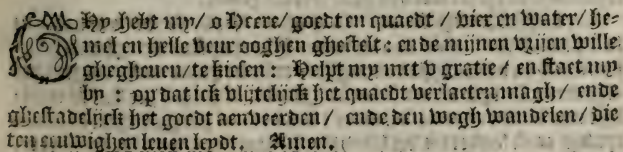 GHy hebt my/ o Heere/ goedt en quaedt / vier en water/ he-
mel en helle veur ooghen ghestelt : ende mijnen vrijen wille
ghegheuen/ te kiesen : Helpt my met v gratie / en staet my
by : op dat ick vlijtelijck het quaedt verlaeten magh / ende
ghestadelijck het goedt aenveerden / ende den wegh wandelen / die
ten eeuwighen leuen leydt. Amen.